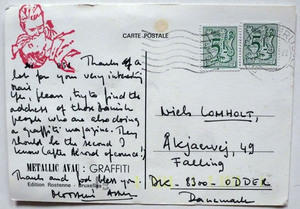 CARTE POSTALE
Thanks of a
lot for your very interesting
mail
Yes, please, try to find the
address of those Danish
people who are also doing
a graffiti magazine. They
should be the second I
know (after
METALLIC AVAU : GRAFFITI
Thanks and God bless you
Edition Rostenne - Bruxelles
Niels LOMHOLT,
Åkjærvej, 49
Falling
DK-8300-ODDER
Danemark